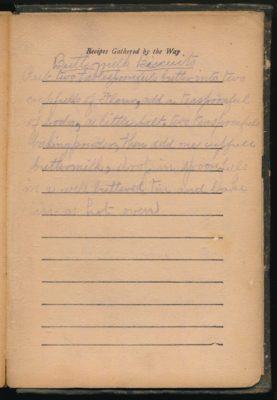 Recipes Gathered by the Way
Buttermilk Biscuits
Rub two tablespoonfuls butter into two
cupfuls of flour, add a teaspoonful
of soda, a little salt, two teaspoonfuls
baking powder, then add one cupful
buttermilk, drop in spoonfuls
in a well buttered tin and bake
in a hot oven